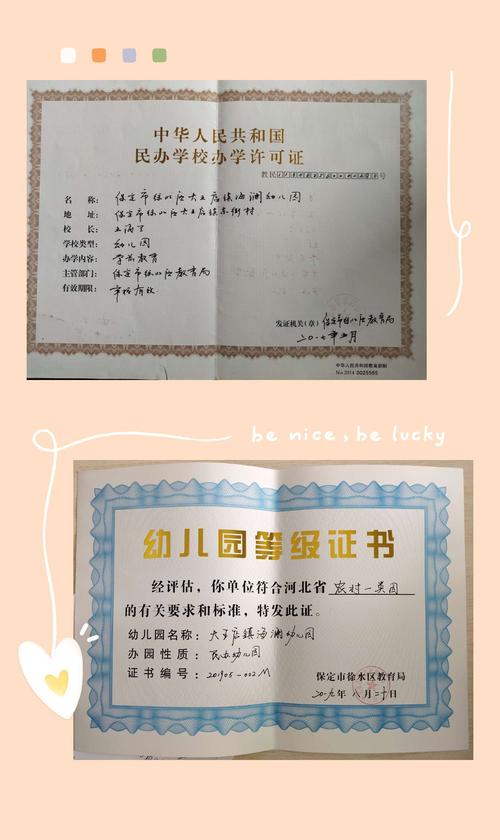 中华人民共和国
民办学校办学许可证
教民
号
名 称: 保定市徐水区大王店镇海澜幼儿园
地 址: 保定市徐水区大王店镇东街村
校 长:
学校类型: 幼儿园
办学内容: 学前教育
主管部门: 保定市徐水区教育局
有效期限: 审核有效
发证机关(章) 保定市徐水区教育局
二〇一七年 月
中华人民共和国教育部制
No.2014 0025565
be nice, be lucky
幼儿园等级证书
经评估,你单位符合河北省 农村一类园
的有关要求和标准,特发此证。
幼儿园名称: 大王店镇海澜幼儿园
办园性质: 民办幼儿园
证书编号: 201905-002M
保定市徐水区教育局
二〇一九年 八 月 二十 日